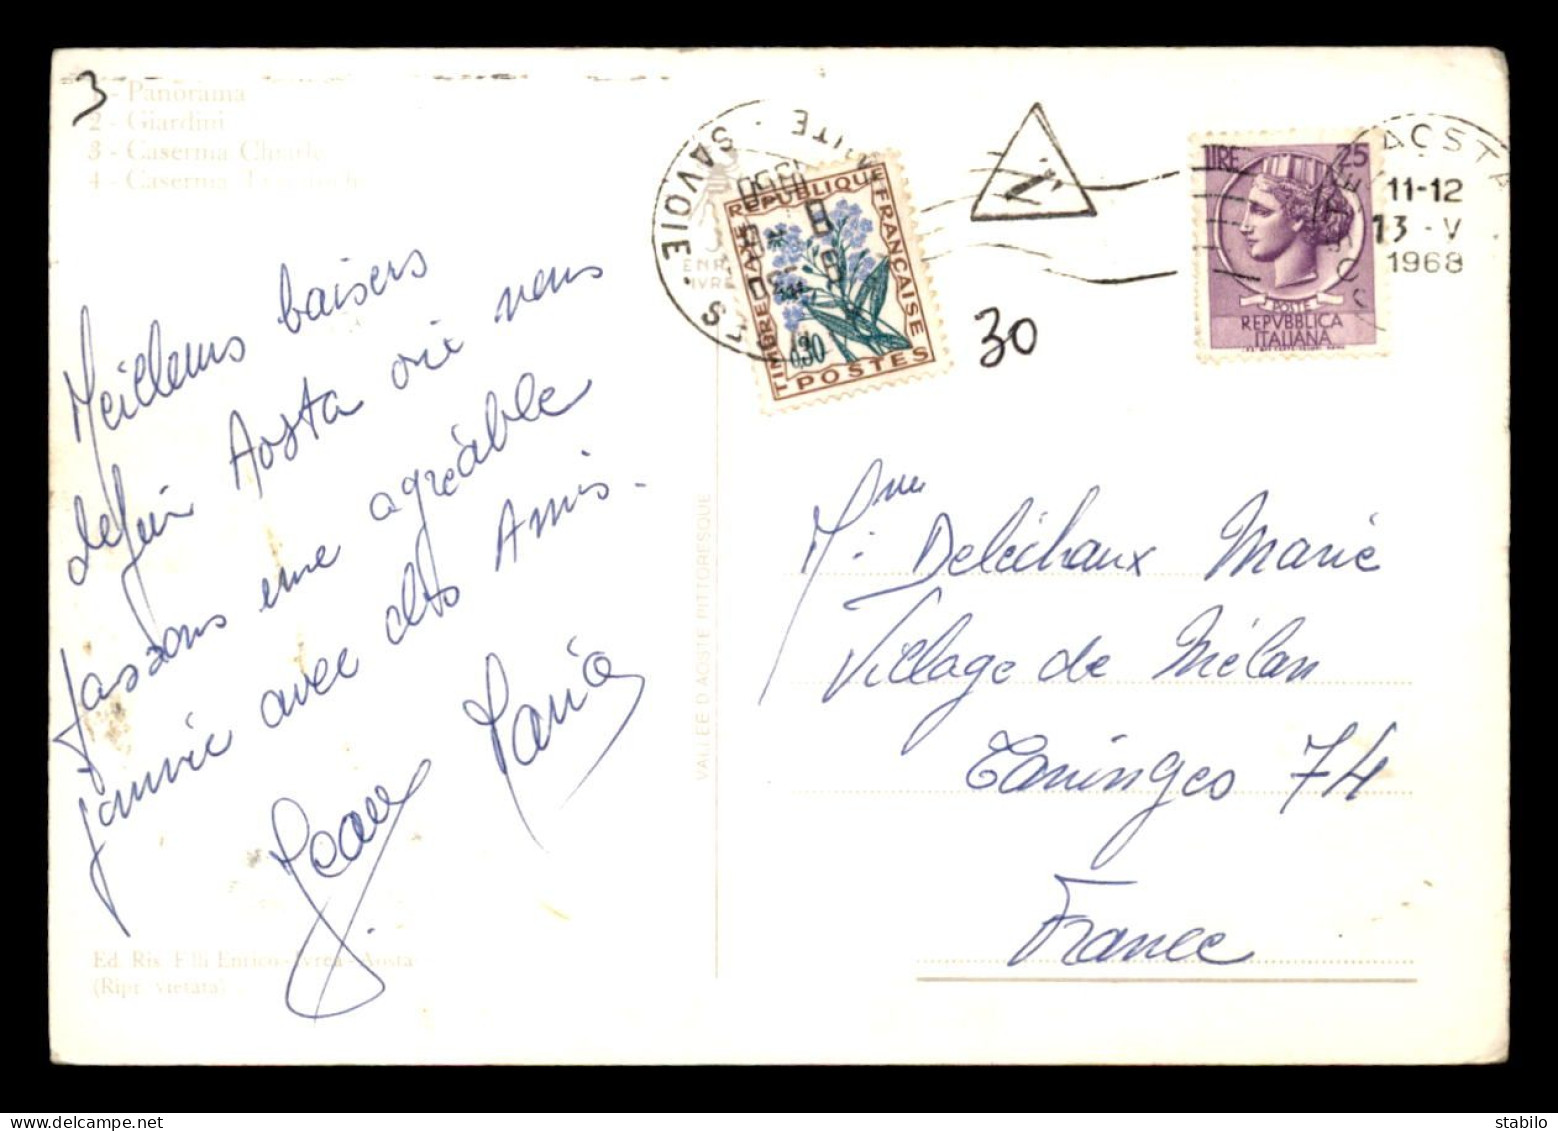 3
1 - Panorama
2 - Giardini
3 - Caserma
4 - Caserma
Meilleurs baisers
depuis Aosta où nous
passons une agréable
journée avec des Amis.
Jean Marie
Ed. Ris. F.lli Enrico - Ivrea - Aosta
(Ripr. vietata)
VALLEE D'AOSTE PITTORESQUE
SAVOIE
REPUBLIQUE FRANÇAISE
TIMBRE TAXE
0,30
POSTES
T
30
LIRE 25
POSTE
REPVBBLICA
ITALIANA
AOSTA
11-12
13 - V
1968
Mme Deléchaux Marie
Village de Mélan
Taninges 74
France